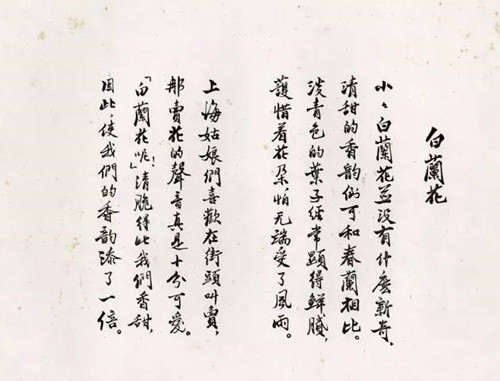 白蘭花
小々白蘭花並没有什麽新奇、
清甜的香韵倒可和春蘭相比。
淡青色的葉子經常顯得鮮膩，
護惜着花朵，怕无端受了風雨。
上海姑娘們喜歡在街頭叫賣，
那賣花的聲音真是十分可愛。
「白蘭花呢！」清脆得比我們香甜，
因此，使我們的香韵添了一倍。